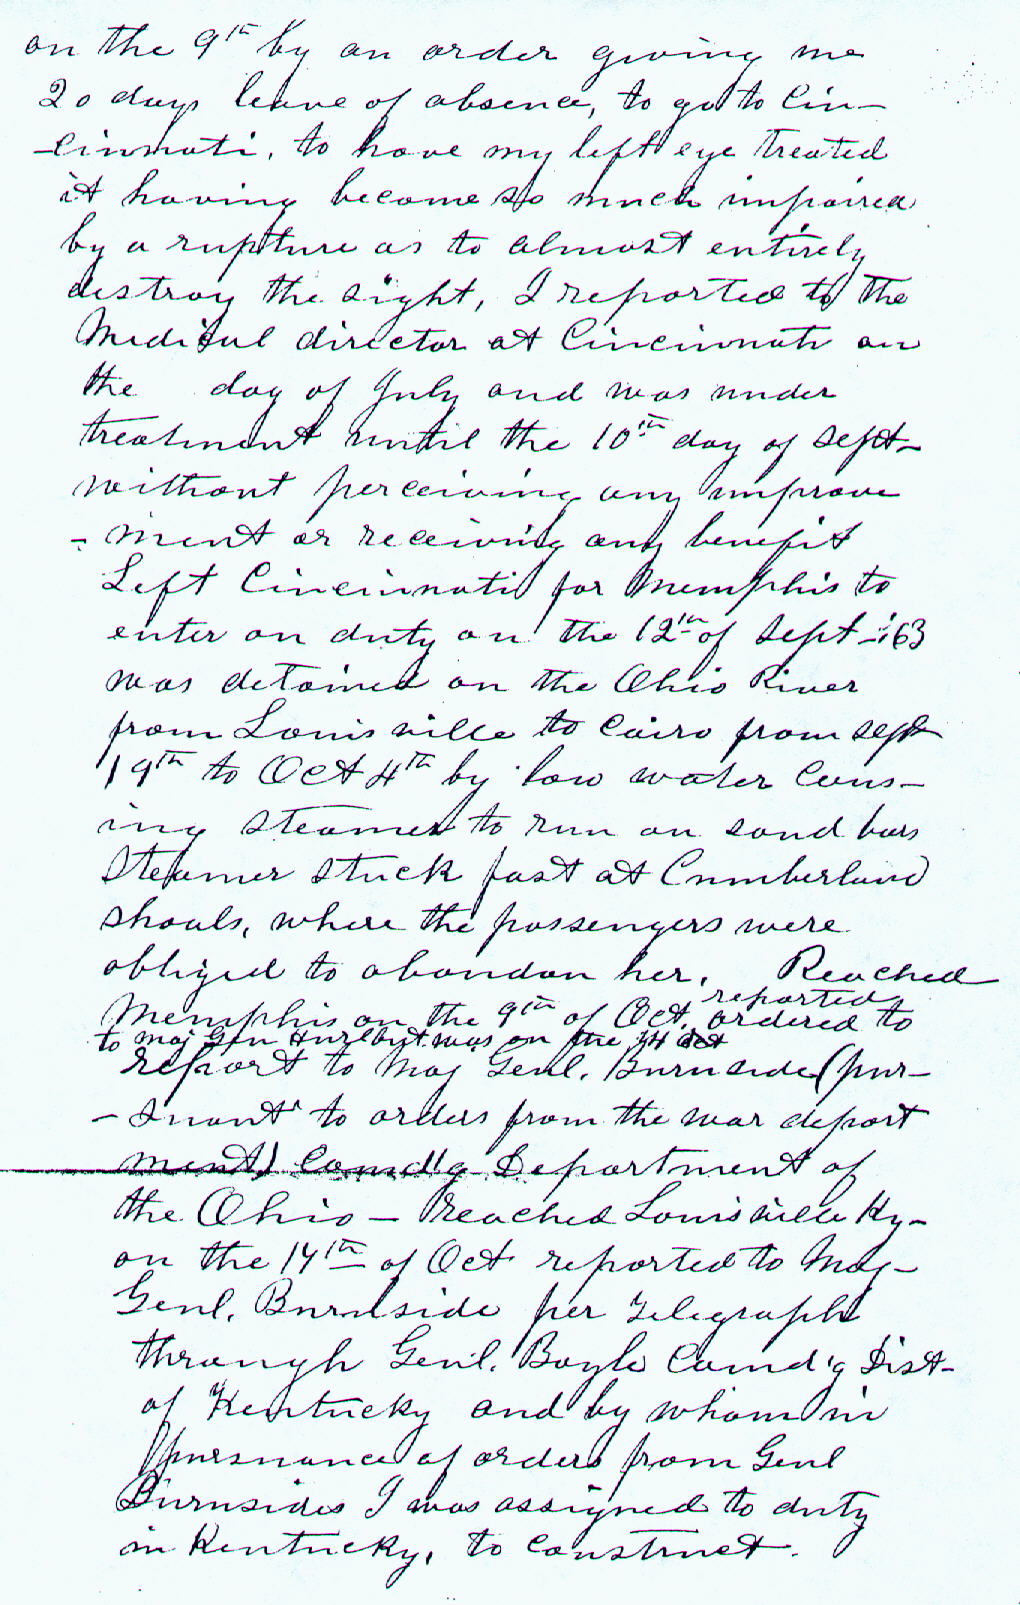 on the 9th by an order giving me
20 days leave of absence, to go to Cin-
-cinnati, to have my left eye treated
it having become so much impaired
by a rupture as to almost entirely
destroy the sight, I reported to the
Medical director at Cincinnati on
the day of July and was under
treatment until the 10th day of Sept-
without perceiving any improve
-ment or receiving any benefit
Left Cincinnati for Memphis to
enter on duty on the 12th of Sept-'63
was detained on the Ohio River
from Louisville to Cairo from Sept
19th to Oct 4th by low water caus-
ing steamer to run on sand bars
Steamer stuck fast at Cumberland
shoals, where the passengers were
obliged to abandon her. Reached
reported
Memphis on the 9th of Oct. ordered to
to Maj Gen Hurlbut was on the Oct
report to Maj Genl. Burnside (pur-
-suant to orders from the war depart
ment) Comd'g Department of
the Ohio - Reached Louisville Ky-
on the 14th of Oct reported to Maj-
Genl. Burnside per Telegraph
through Genl. Boyle Comd'g Dist-
of Kentucky and by whom in
pursuance of orders from Genl
Burnsides I was assigned to duty
in Kentucky, to construct.